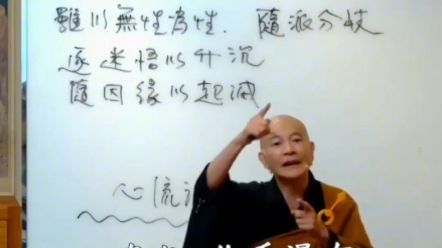 雖以無性為性.隨派分歧
逐迷悟以升沉
隨因緣以起滅
心流